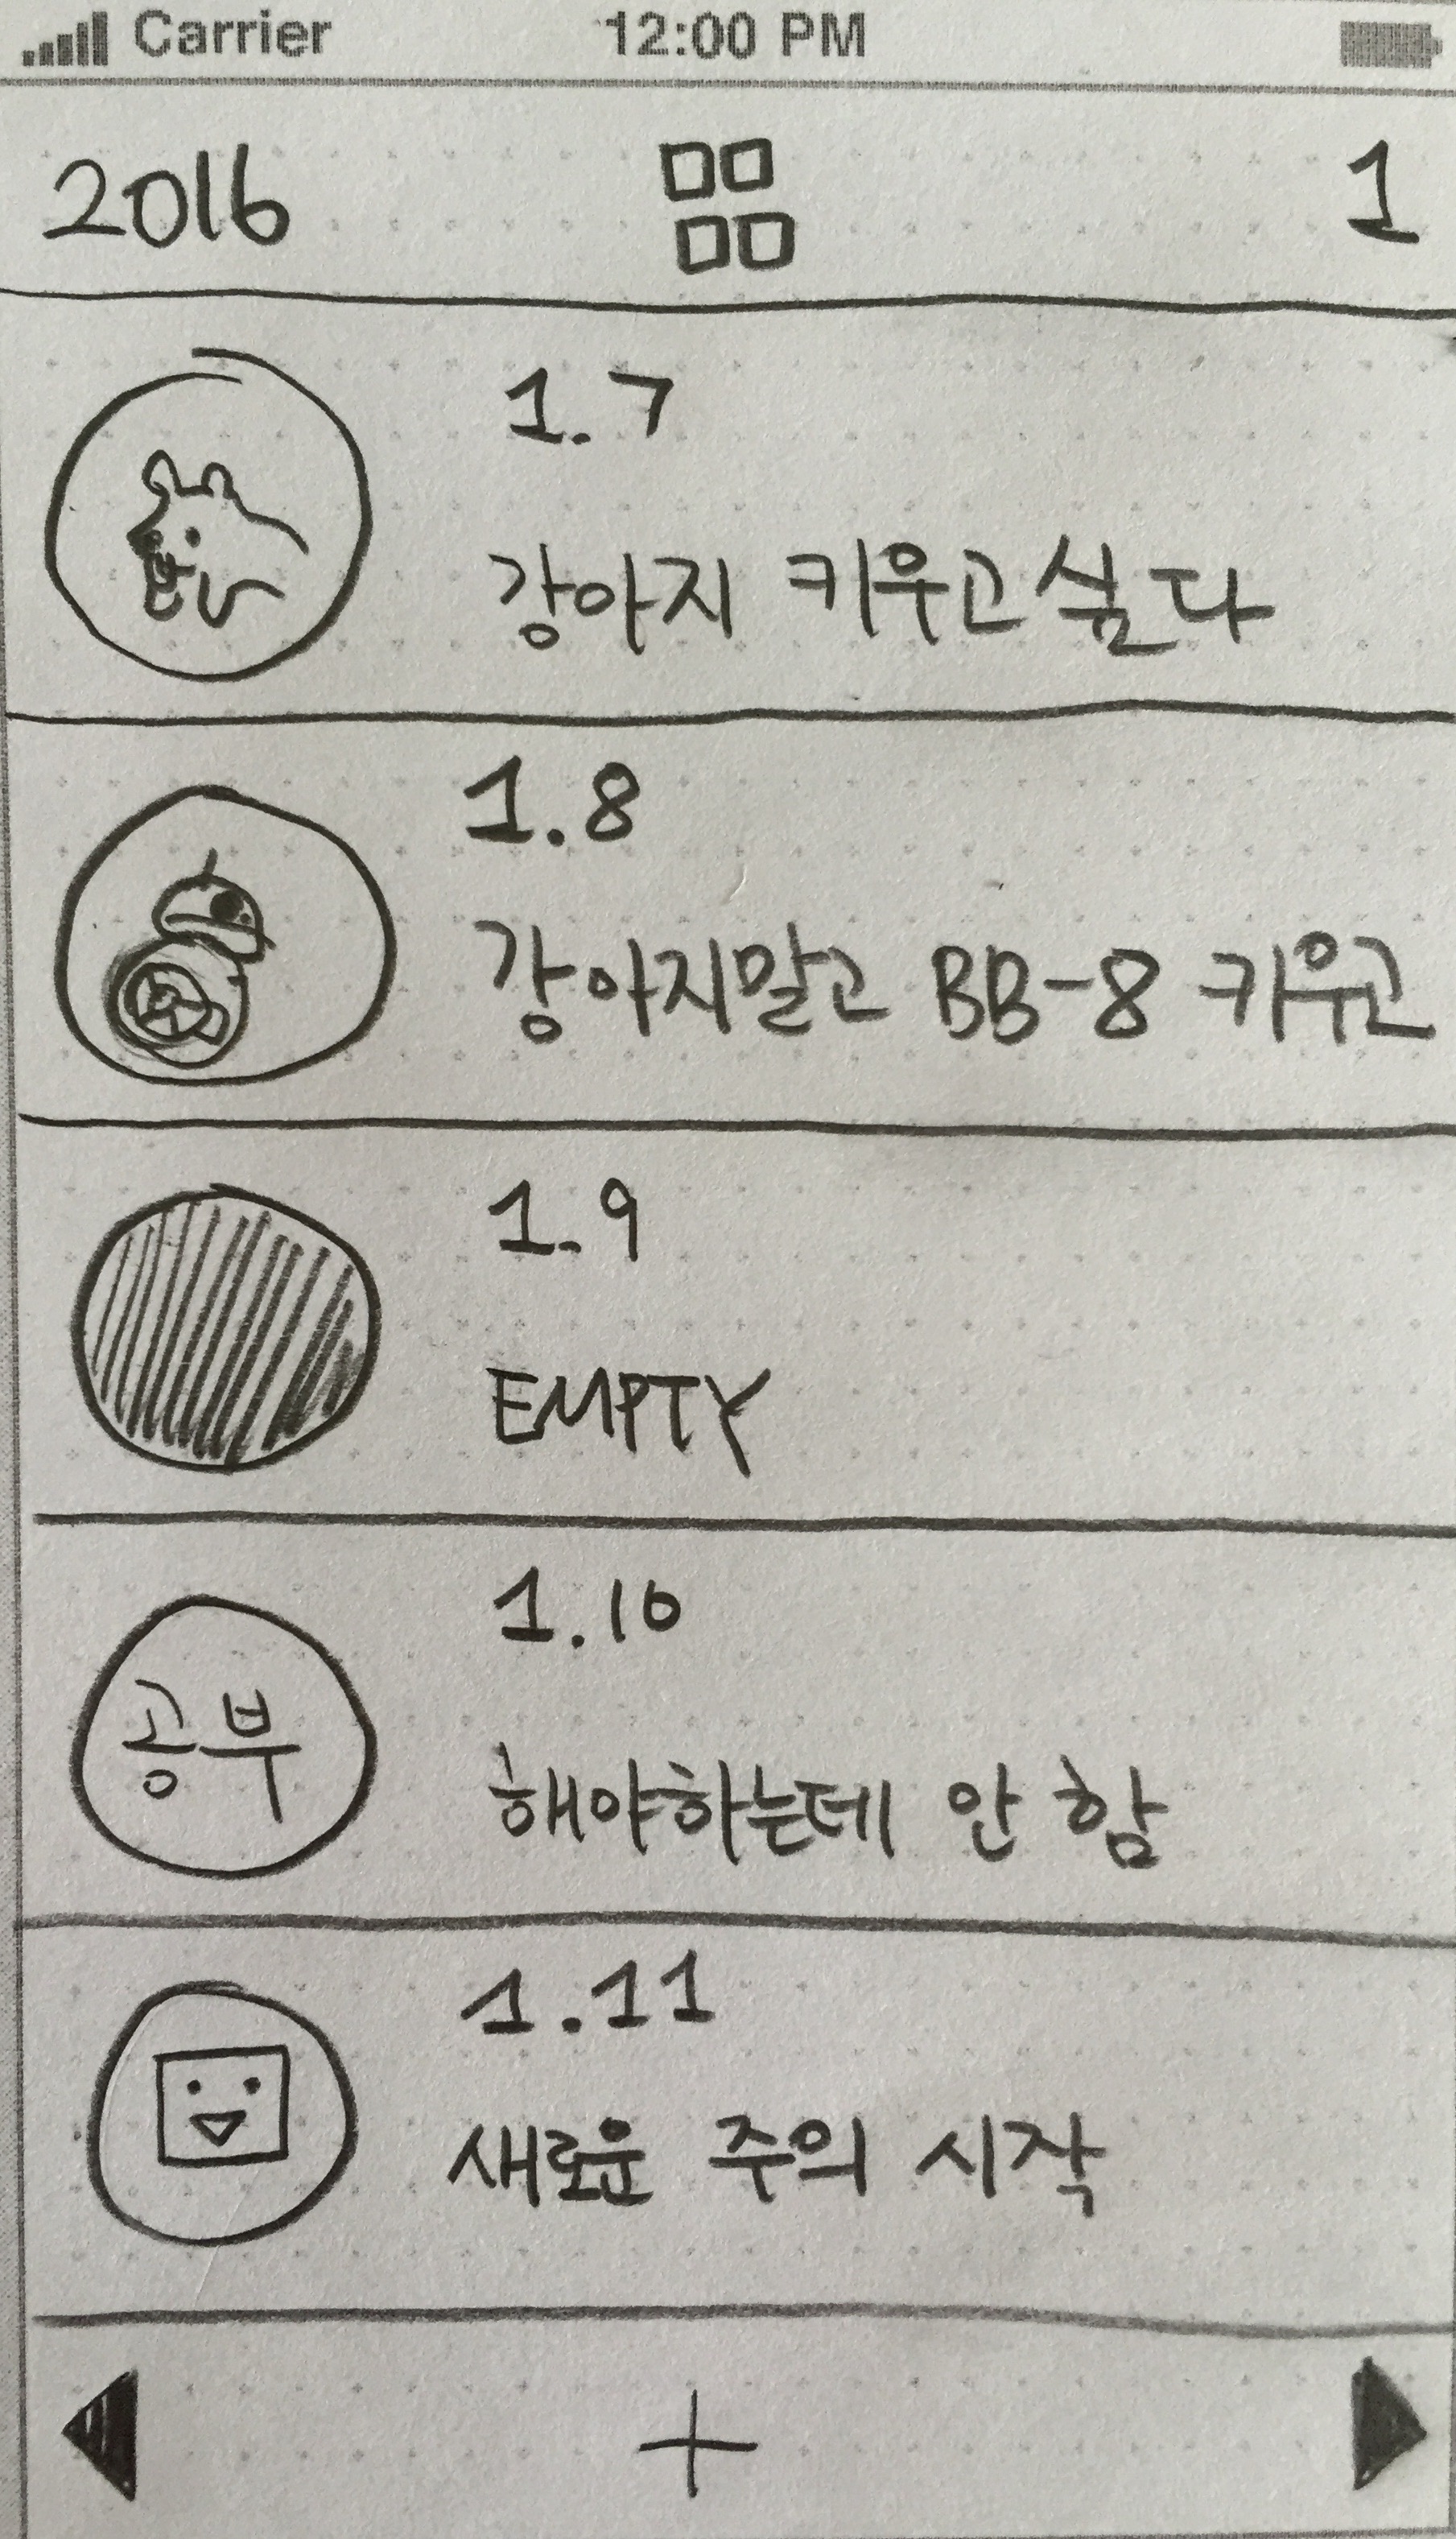 Carrier 12:00 PM
2016 1
1.7
강아지 키우고싶다
1.8
강아지말고 BB-8 키우고
1.9
EMPTY
1.10
공부
해야하는데 안 함
1.11
새로운 주의 시작